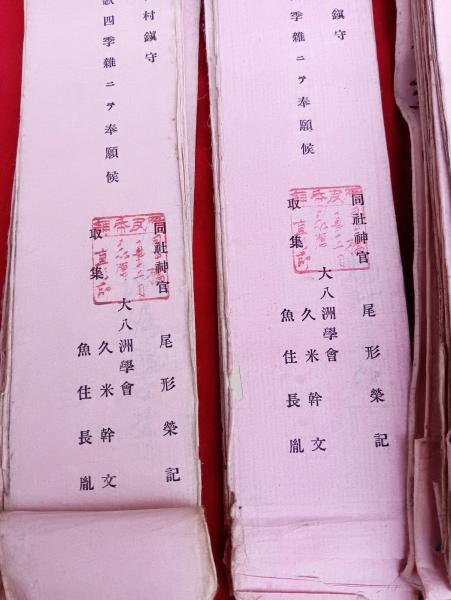 村鎭守
四季雜ニテ奉願候
同社神官 尾形榮記
大八洲學會
取集 久米幹文
魚住長胤
鎭守
季雜ニテ奉願候
同社神官 尾形榮記
大八洲學會
取集 久米幹文
魚住長胤